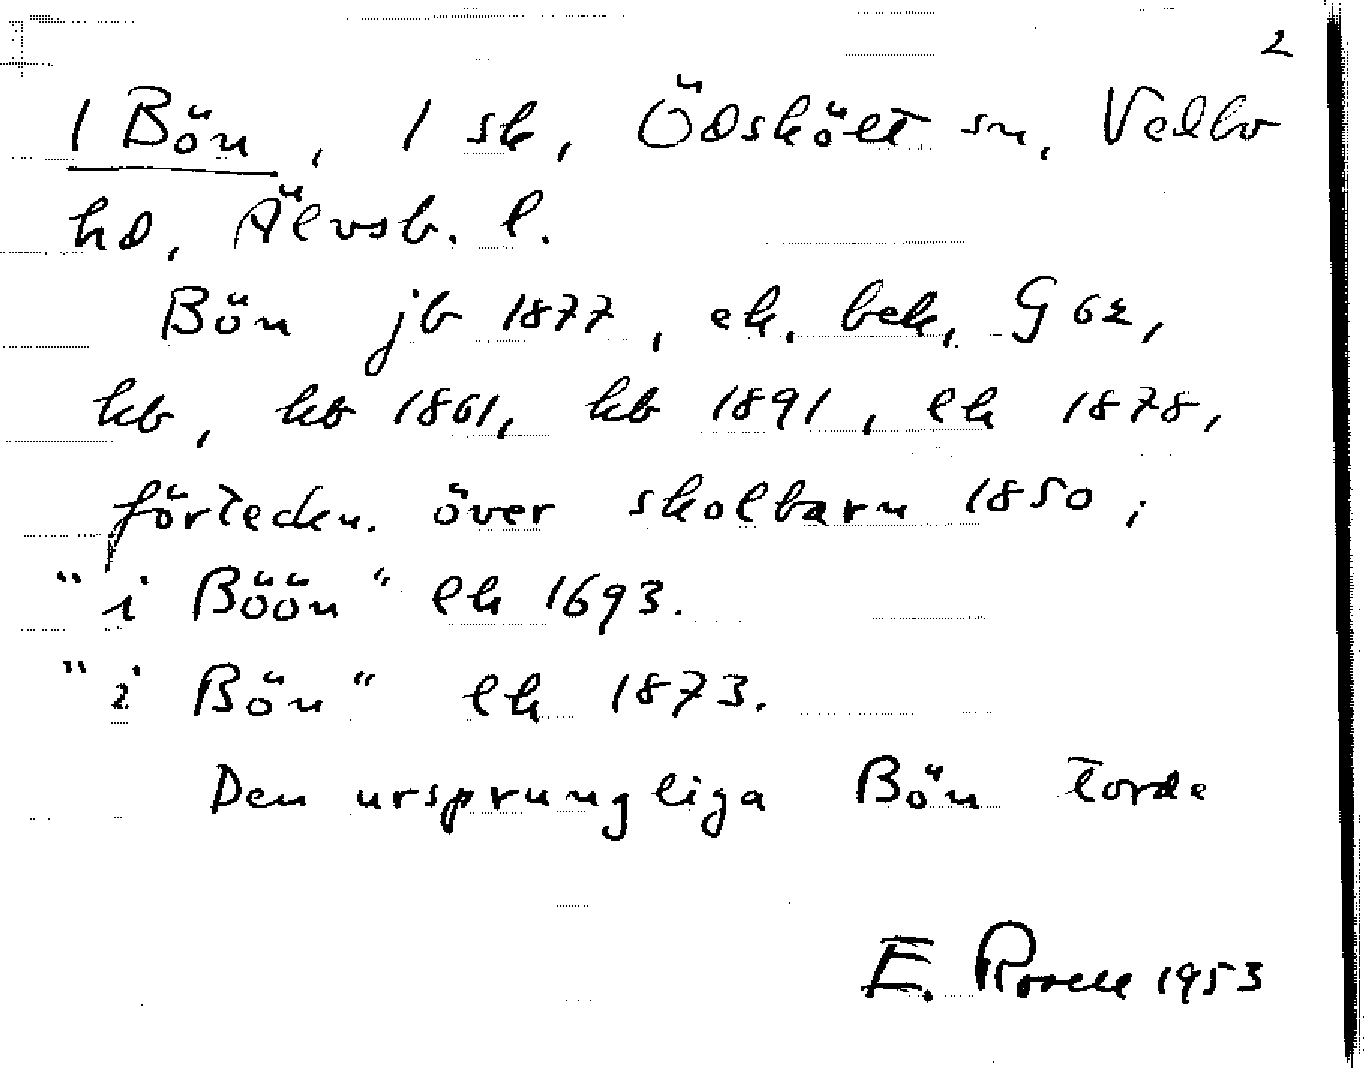 2
1 Bön, 1 sk, Ödskölt sn, Vedbo
hd, Älvsb. l.
Bön jb 1877, ek. bek. G 62,
kb, kb 1861, kb 1891, lk 1878,
förteckn. över skolbarn 1850;
"i Böön" lk 1693.
"i Bön" lk 1873.
Den ursprungliga Bön torde
E. Rosell 1953